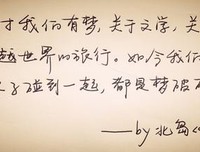 我们有梦，关于文学，关
越世界的旅行。如今我们
子碰到一起，都是梦破
——by 北岛《